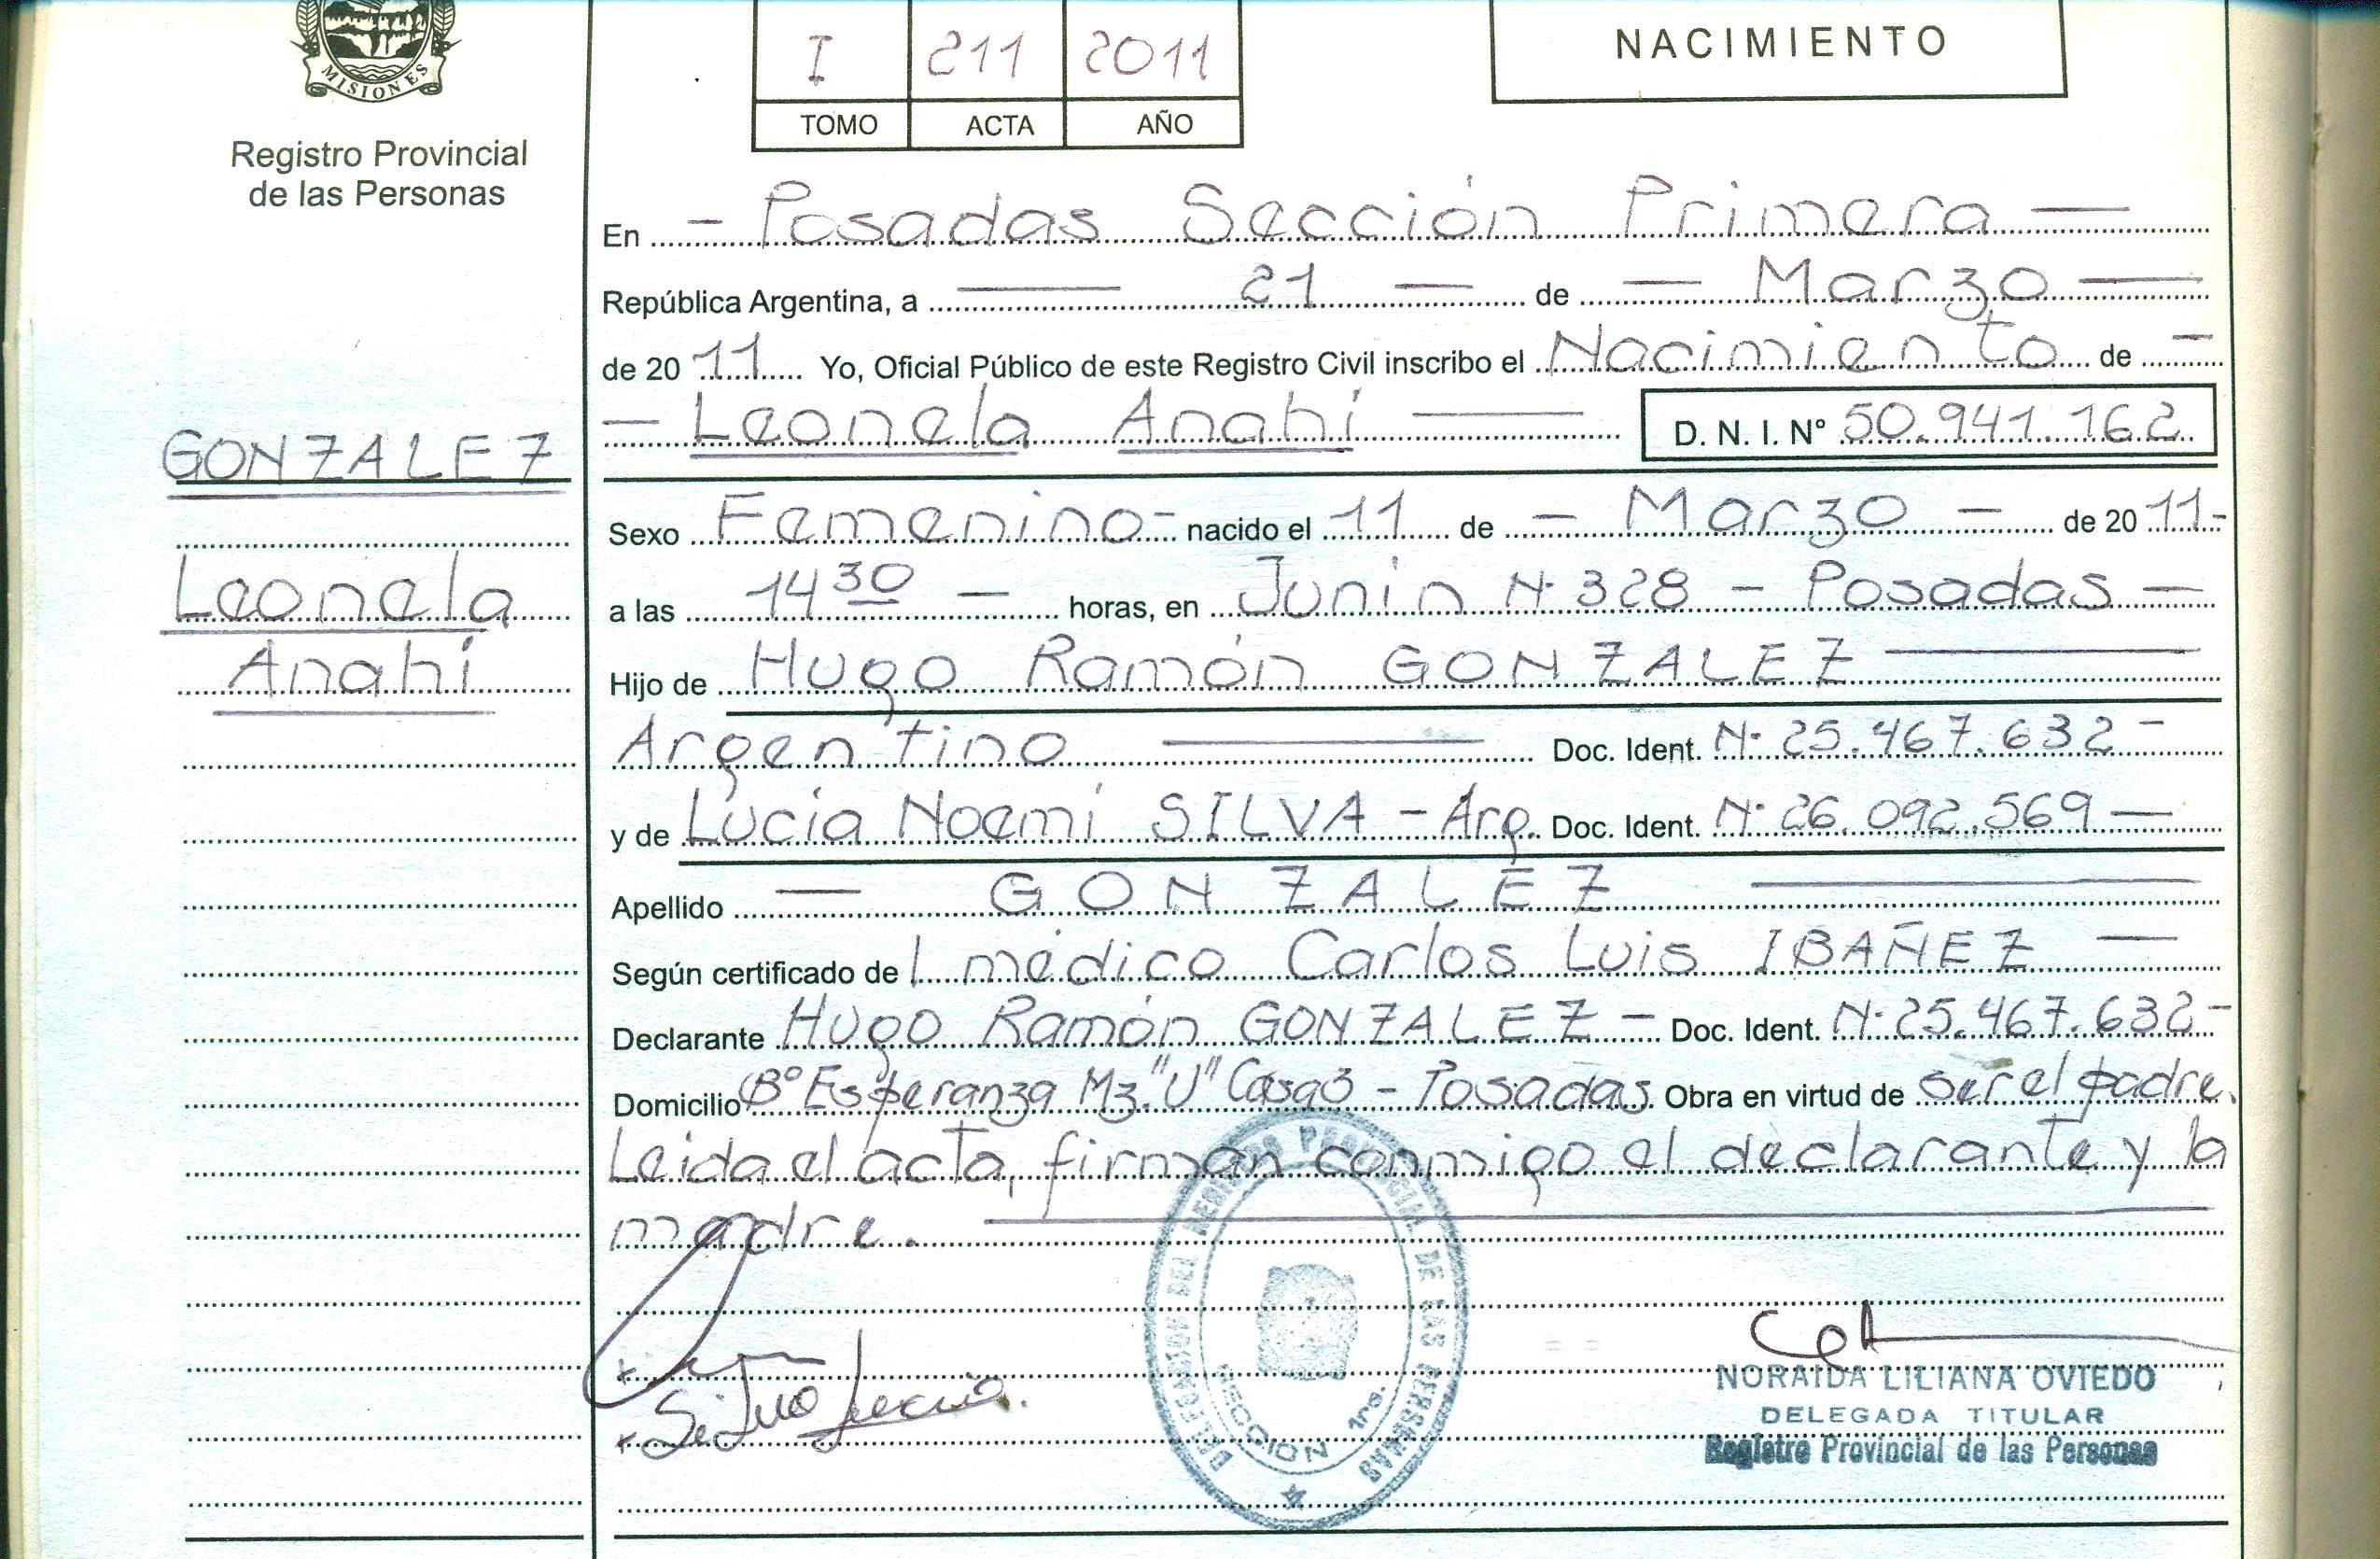 MISIONES
Registro Provincial
de las Personas
I 211 2011
TOMO ACTA AÑO
NACIMIENTO
En - Posadas Sección Primera -
República Argentina, a - 21 - de - Marzo -
de 2011 Yo, Oficial Público de este Registro Civil inscribo el Nacimiento de -
- Leonela Anahí - D. N. I. Nº 50.941.162
GONZALEZ
Leonela
Anahí
Sexo Femenino - nacido el 11 de - Marzo - de 2011-
a las 14 30 - horas, en Junín N· 328 - Posadas -
Hijo de Hugo Ramón GONZALEZ -
Argentino - Doc. Ident. N· 25.467.632 -
y de Lucía Noemí SILVA - Arg. Doc. Ident. N· 26.092.569 -
Apellido - GONZALEZ -
Según certificado de l médico Carlos Luis IBAÑEZ -
Declarante Hugo Ramón GONZALEZ - Doc. Ident. N· 25.467.632 -
Domicilio Bº Esperanza Mz. "U" Casa 3 - Posadas Obra en virtud de ser el padre.
Leida el acta, firman conmigo el declarante y la
madre.
Silva Lucia.
DELEGACION DEL REGISTRO PROVINCIAL DE LAS PERSONAS
SECCION 1ra.
NORAIDA LILIANA OVIEDO
DELEGADA TITULAR
Registro Provincial de las Personas